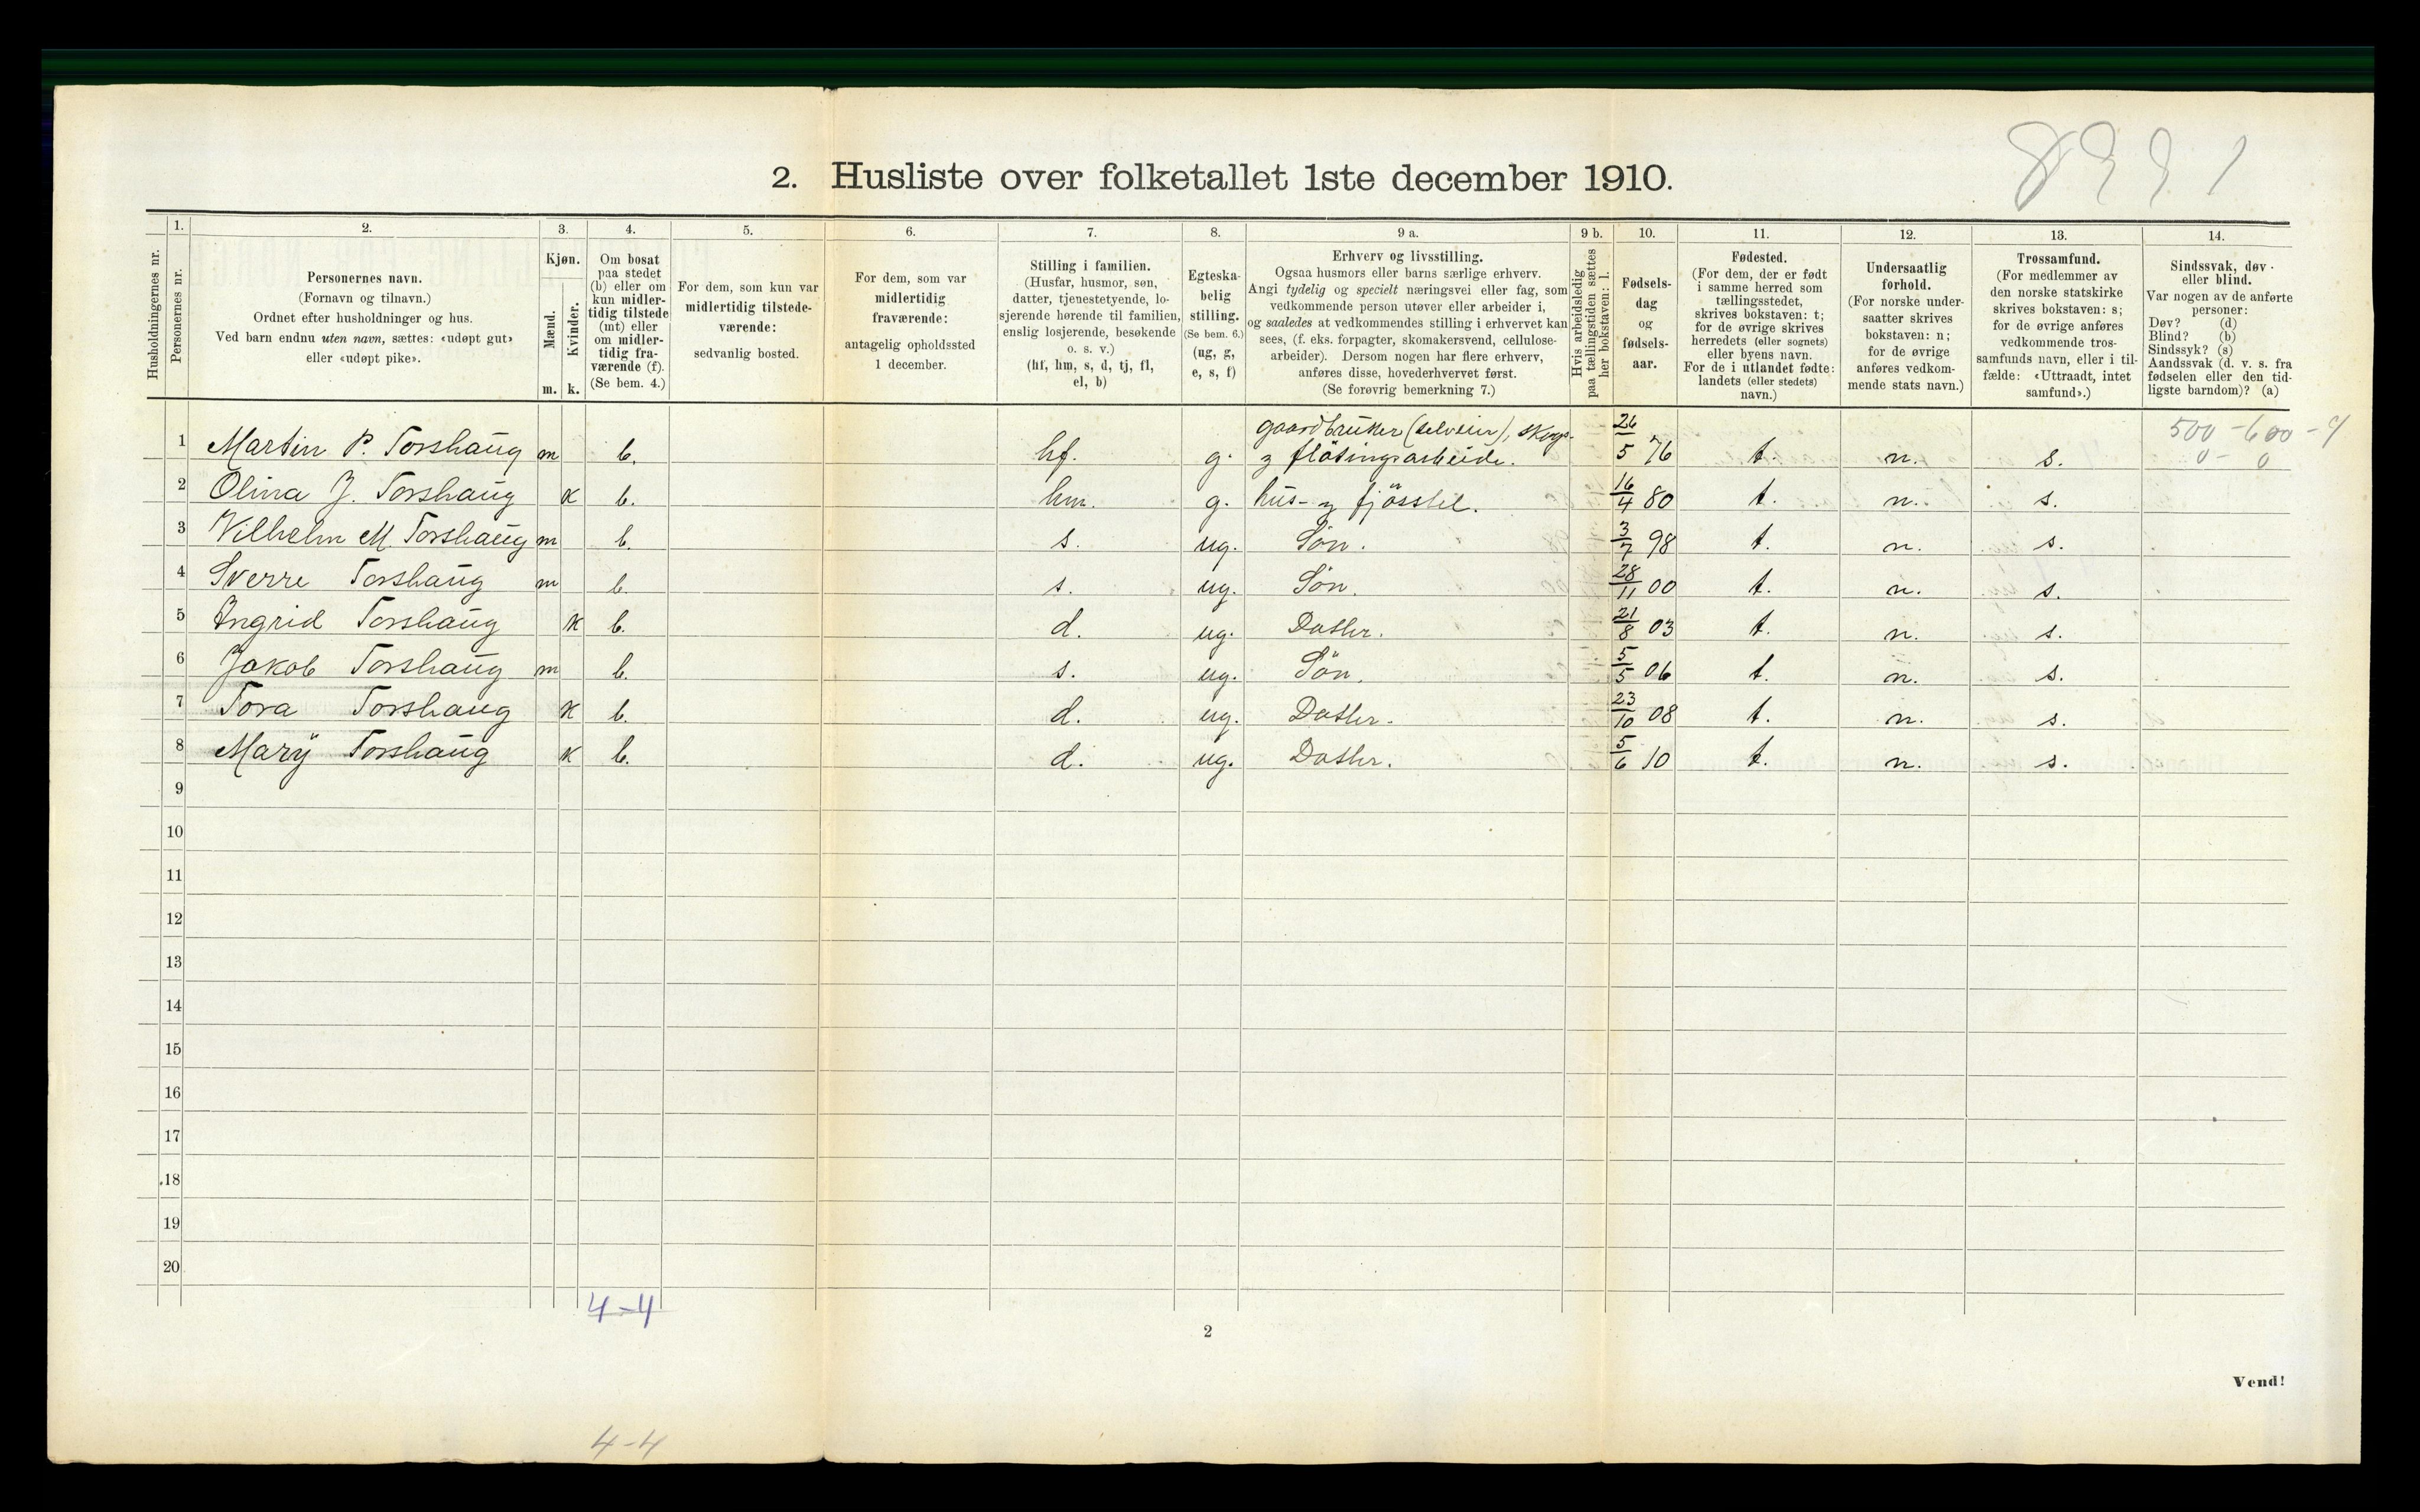 8991
2. Husliste over folketallet 1ste december 1910.
Husholdningernes nr.
1.
Personernes nr.
2.
Personernes navn.
(Fornavn og tilnavn.)
Ordnet efter husholdninger og hus.
Ved barn endnu uten navn, sættes: «udøpt gut»
eller «udøpt pike».
3.
Kjøn.
Mænd.
m.
Kvinder.
k.
4.
Om bosat
paa stedet
(b) eller om
kun midler-
tidig tilstede
(mt) eller
om midler-
tidig fra-
værende (f).
(Se bem. 4.)
5.
For dem, som kun var
midlertidig tilstede-
værende:
sedvanlig bosted.
6.
For dem, som var
midlertidig
fraværende:
antagelig opholdssted
1 december.
7.
Stilling i familien.
(Husfar, husmor, søn,
datter, tjenestetyende, lo-
sjerende hørende til familien,
enslig losjerende, besøkende
o. s. v.)
(hf, hm, s, d, tj, fl,
el, b)
8.
Egteska-
belig
stilling.
(Se bem. 6.)
(ug, g,
e, s, f)
9 a.
Erhverv og livsstilling.
Ogsaa husmors eller barns særlige erhverv.
Angi tydelig og specielt næringsvei eller fag, som
vedkommende person utøver eller arbeider i,
og saaledes at vedkommendes stilling i erhvervet kan
sees, (f. eks. forpagter, skomakersvend, cellulose-
arbeider). Dersom nogen har flere erhverv,
anføres disse, hovederhvervet først.
(Se forøvrig bemerkning 7.)
9 b.
Hvis arbeidsledig
paa tællingstiden sættes
her bokstaven: l.
10.
Fødsels-
dag
og
fødsels-
aar.
11.
Fødested.
(For dem, der er født
i samme herred som
tællingsstedet,
skrives bokstaven: t;
for de øvrige skrives
herredets (eller sognets)
eller byens navn.
For de i utlandet fødte:
landets (eller stedets)
navn.)
12.
Undersaatlig
forhold.
(For norske under-
saatter skrives
bokstaven: n;
for de øvrige
anføres vedkom-
mende stats navn.)
13.
Trossamfund.
(For medlemmer av
den norske statskirke
skrives bokstaven: s;
for de øvrige anføres
vedkommende tros-
samfunds navn, eller i til-
fælde: «Uttraadt, intet
samfund».)
14.
Sindssvak, døv
eller blind.
Var nogen av de anførte
personer:
Døv? (d)
Blind? (b)
Sindssyk? (s)
Aandssvak (d. v. s. fra
fødselen eller den tid-
ligste barndom)? (a)
gaardbruker (selveier), skogs-
500 - 600 - 4
0 - 0
1 Martin P. Torshaug m b. hf. g. & flötingsarbeide. 26/5 76 t. n. s.
2 Olina J. Torshaug k b. hm. g. hus- & fjösstel. 16/4 80 t. n. s.
3 Vilhelm M. Torshaug m b. s. ug. Sön. 3/7 98 t. n. s.
4 Sverre Torshaug m b. s. ug. Sön. 28/11 00 t. n. s.
5 Ingrid Torshaug k b. d. ug. Datter. 21/8 03 t. n. s.
6 Jakob Torshaug m b. s. ug. Sön. 5/5 06 t. n. s.
7 Tora Torshaug k b. d. ug. Datter. 23/10 08 t. n. s.
8 Mary Torshaug k b. d. ug. Datter. 5/6 10 t. n. s.
9
10
11
12
13
14
15
16
17
18
19
20
4-4
2
Vend!
4-4